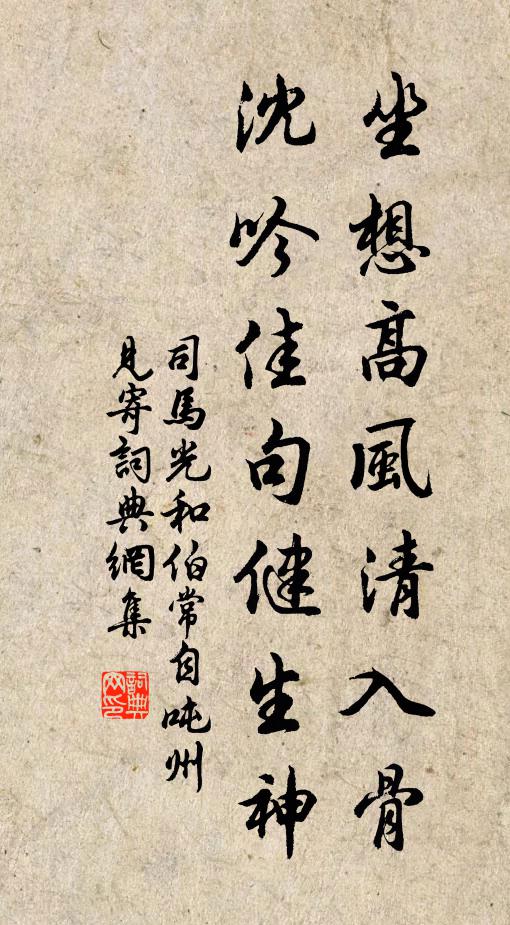 坐想高風清入骨
沈吟佳句健生神
司馬光和伯常自吨州
見寄詞典網集
詞典網印